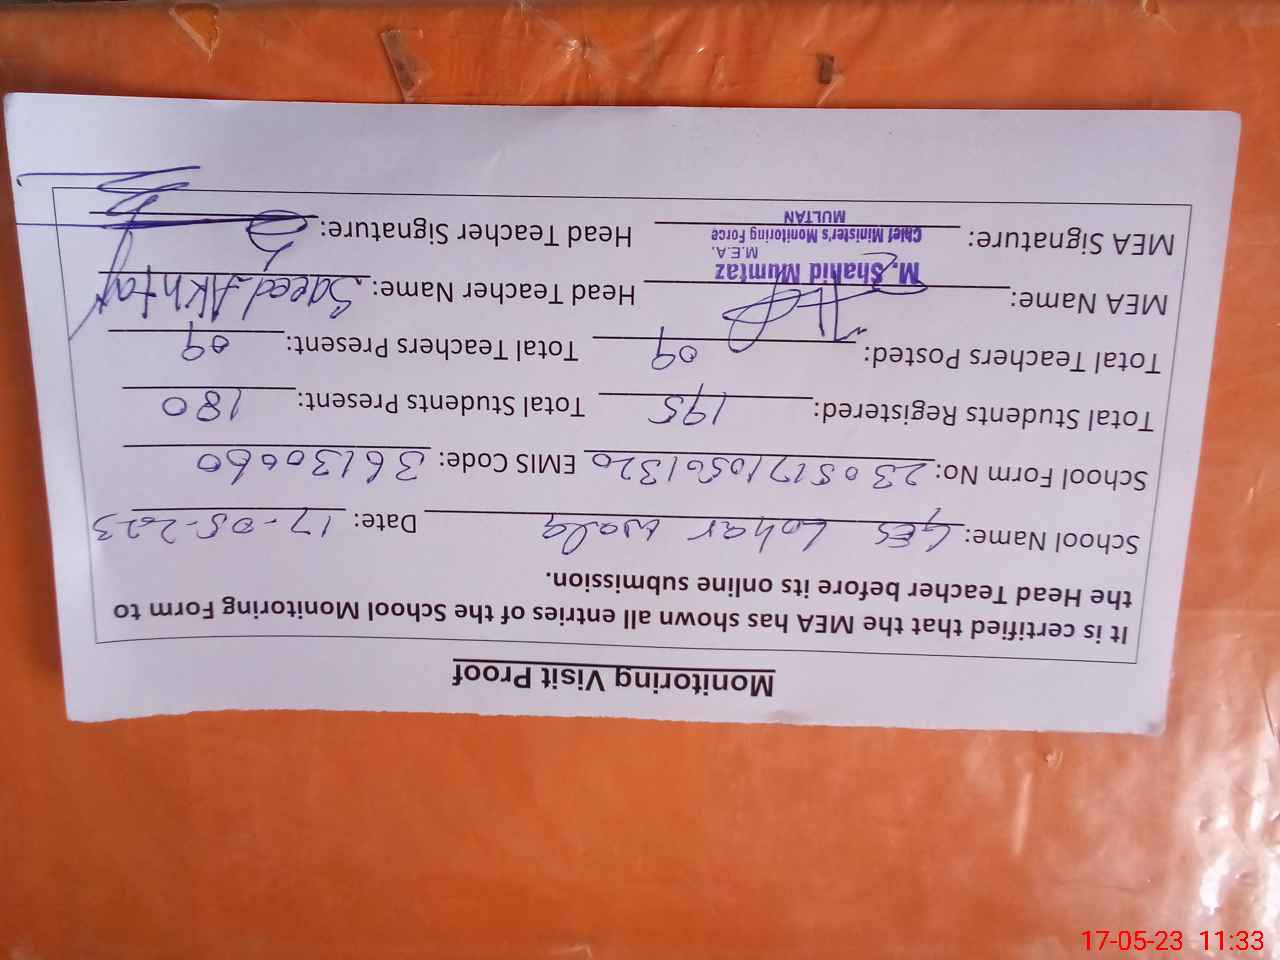 Monitoring Visit Proof
It is certified that the MEA has shown all entries of the School Monitoring Form to
the Head Teacher before its online submission.
School Name: GES Lohar wala Date: 17-05-2023
School Form No: 23051710561320 EMIS Code: 36130060
Total Students Registered: 195 Total Students Present: 180
Total Teachers Posted: 09 Total Teachers Present: 09
MEA Name: Head Teacher Name: Saeed Akhtar
M. Shahid Mumtaz
M.E.A.
Chief Minister's Monitoring Force
MULTAN
MEA Signature: Head Teacher Signature:
17-05-23 11:33